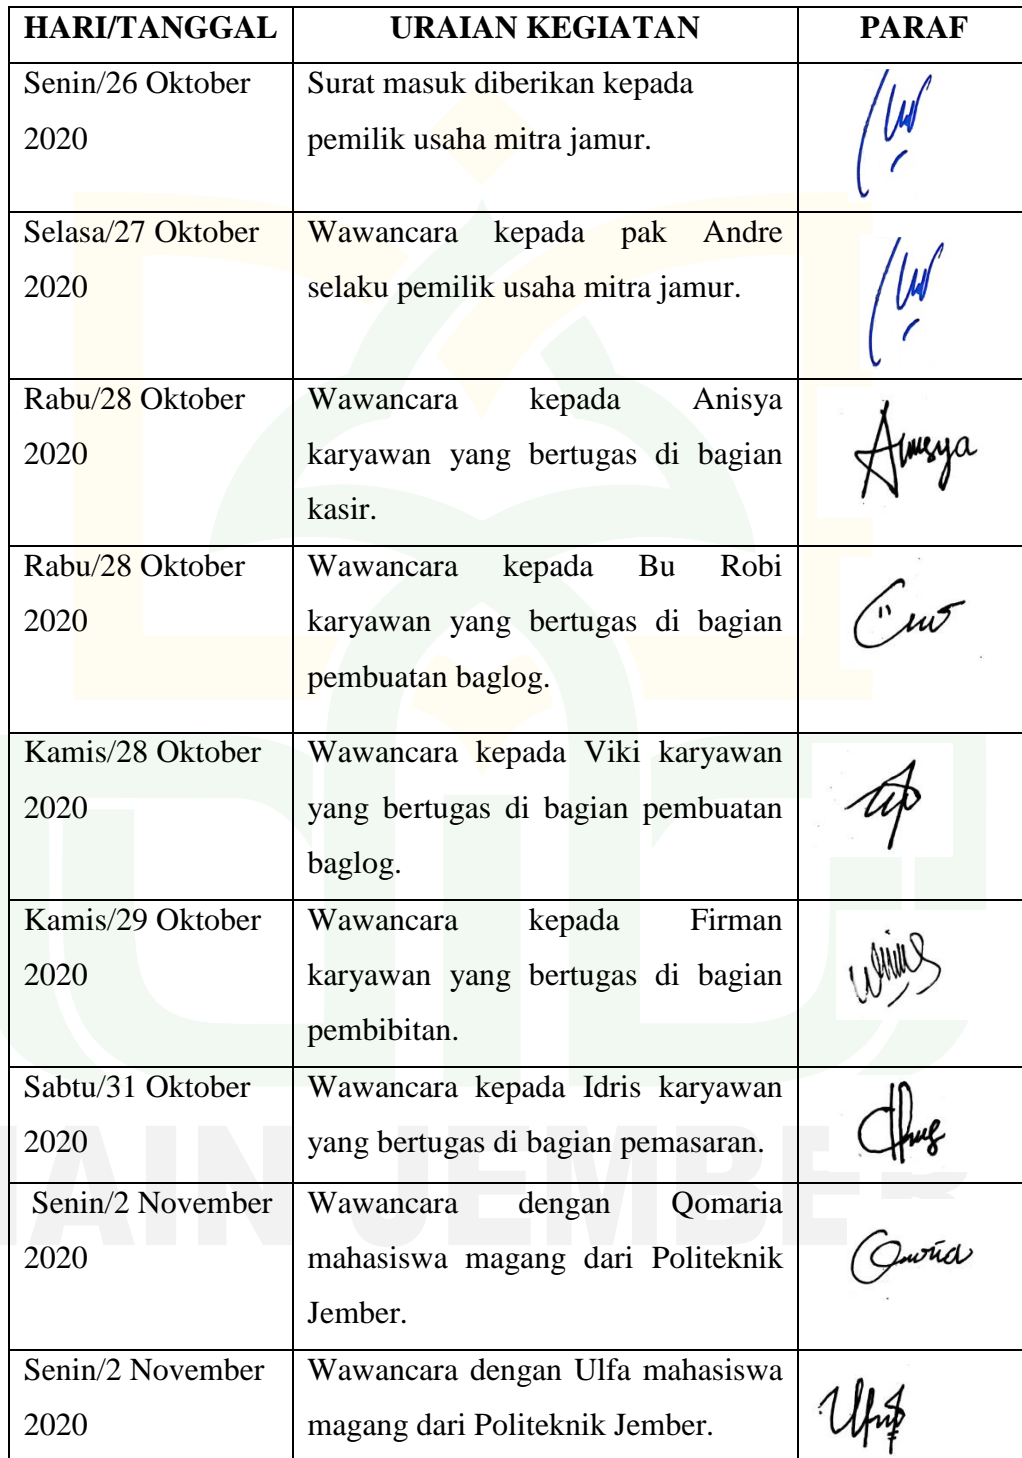 HARI/TANGGAL URAIAN KEGIATAN PARAF
Senin/26 Oktober
2020
Surat masuk diberikan kepada
pemilik usaha mitra jamur.
Selasa/27 Oktober
2020
Wawancara kepada pak Andre
selaku pemilik usaha mitra jamur.
Rabu/28 Oktober
2020
Wawancara kepada Anisya
karyawan yang bertugas di bagian
kasir.
Anisya
Rabu/28 Oktober
2020
Wawancara kepada Bu Robi
karyawan yang bertugas di bagian
pembuatan baglog.
Kamis/28 Oktober
2020
Wawancara kepada Viki karyawan
yang bertugas di bagian pembuatan
baglog.
Kamis/29 Oktober
2020
Wawancara kepada Firman
karyawan yang bertugas di bagian
pembibitan.
Sabtu/31 Oktober
2020
Wawancara kepada Idris karyawan
yang bertugas di bagian pemasaran.
Senin/2 November
2020
Wawancara dengan Qomaria
mahasiswa magang dari Politeknik
Jember.
Senin/2 November
2020
Wawancara dengan Ulfa mahasiswa
magang dari Politeknik Jember.
IAIN JEMBER